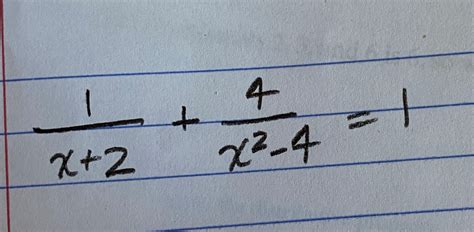 1/(x+2) + 4/(x²-4) = 1